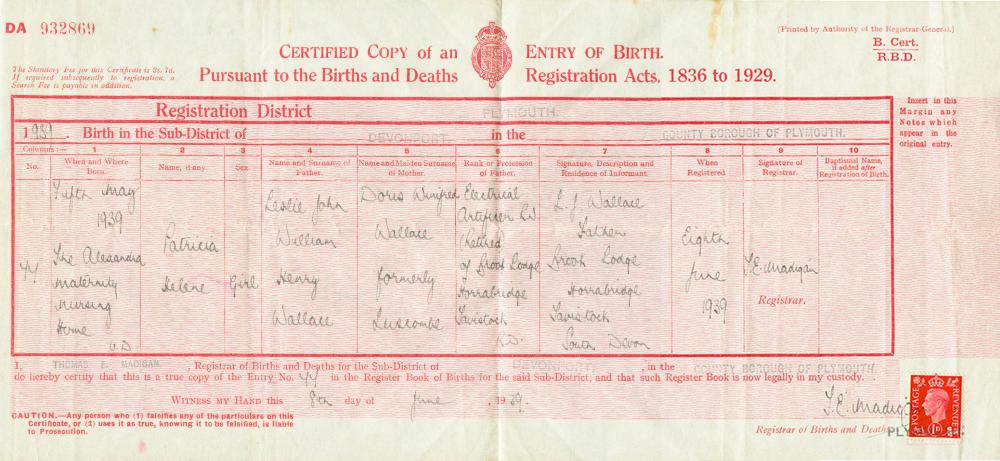 DA 932869
[Printed by Authority of the Registrar-General.]
B. Cert.
R.B.D.
CERTIFIED COPY OF AN ENTRY OF BIRTH.
Pursuant to the Births and Deaths Registration Acts, 1836 to 1929.
The Statutory Fee for this Certificate is 2s. 7d.
If required subsequently to registration, a
Search Fee is payable in addition.
Registration District PLYMOUTH.
1939. Birth in the Sub-District of DEVONPORT. in the COUNTY BOROUGH OF PLYMOUTH.
Insert in this
Margin any
Notes which
appear in the
original entry.
Columns:— 1 2 3 4 5 6 7 8 9 10
No.
When and Where
Born.
Name, if any.
Sex.
Name and Surname of
Father.
Name and Maiden Surname
of Mother.
Rank or Profession
of Father.
Signature, Description and
Residence of Informant.
When
Registered.
Signature of
Registrar.
Baptismal Name,
if added after
Registration of Birth.
44
Fifth May
1939
The Alexandra
Maternity
Nursing
Home
U.D
Patricia
Helene
Girl
Leslie John
William
Henry
Wallace
Doris Winifred
Wallace
formerly
Luscombe
Electrical
Artificer R.N
(Retired
of Brook Lodge
Horrabridge
Tavistock
R.D.
L. J Wallace
Father
Brook Lodge
Horrabridge
Tavistock
South Devon
Eighth
June
1939
T.E. Madigan
Registrar.
I, THOMAS E. MADIGAN, Registrar of Births and Deaths for the Sub-District of DEVONPORT, in the COUNTY BOROUGH OF PLYMOUTH
do hereby certify that this is a true copy of the Entry No. 44 in the Register Book of Births for the said Sub-District, and that such Register Book is now legally in my custody.
WITNESS MY HAND this 8th day of June, 1939.
CAUTION.—Any person who (1) falsifies any of the particulars on this
Certificate, or (2) uses it as true, knowing it to be falsified, is liable
to Prosecution.
T.E. Madigan
Registrar of Births and Deaths
POSTAGE REVENUE
1D